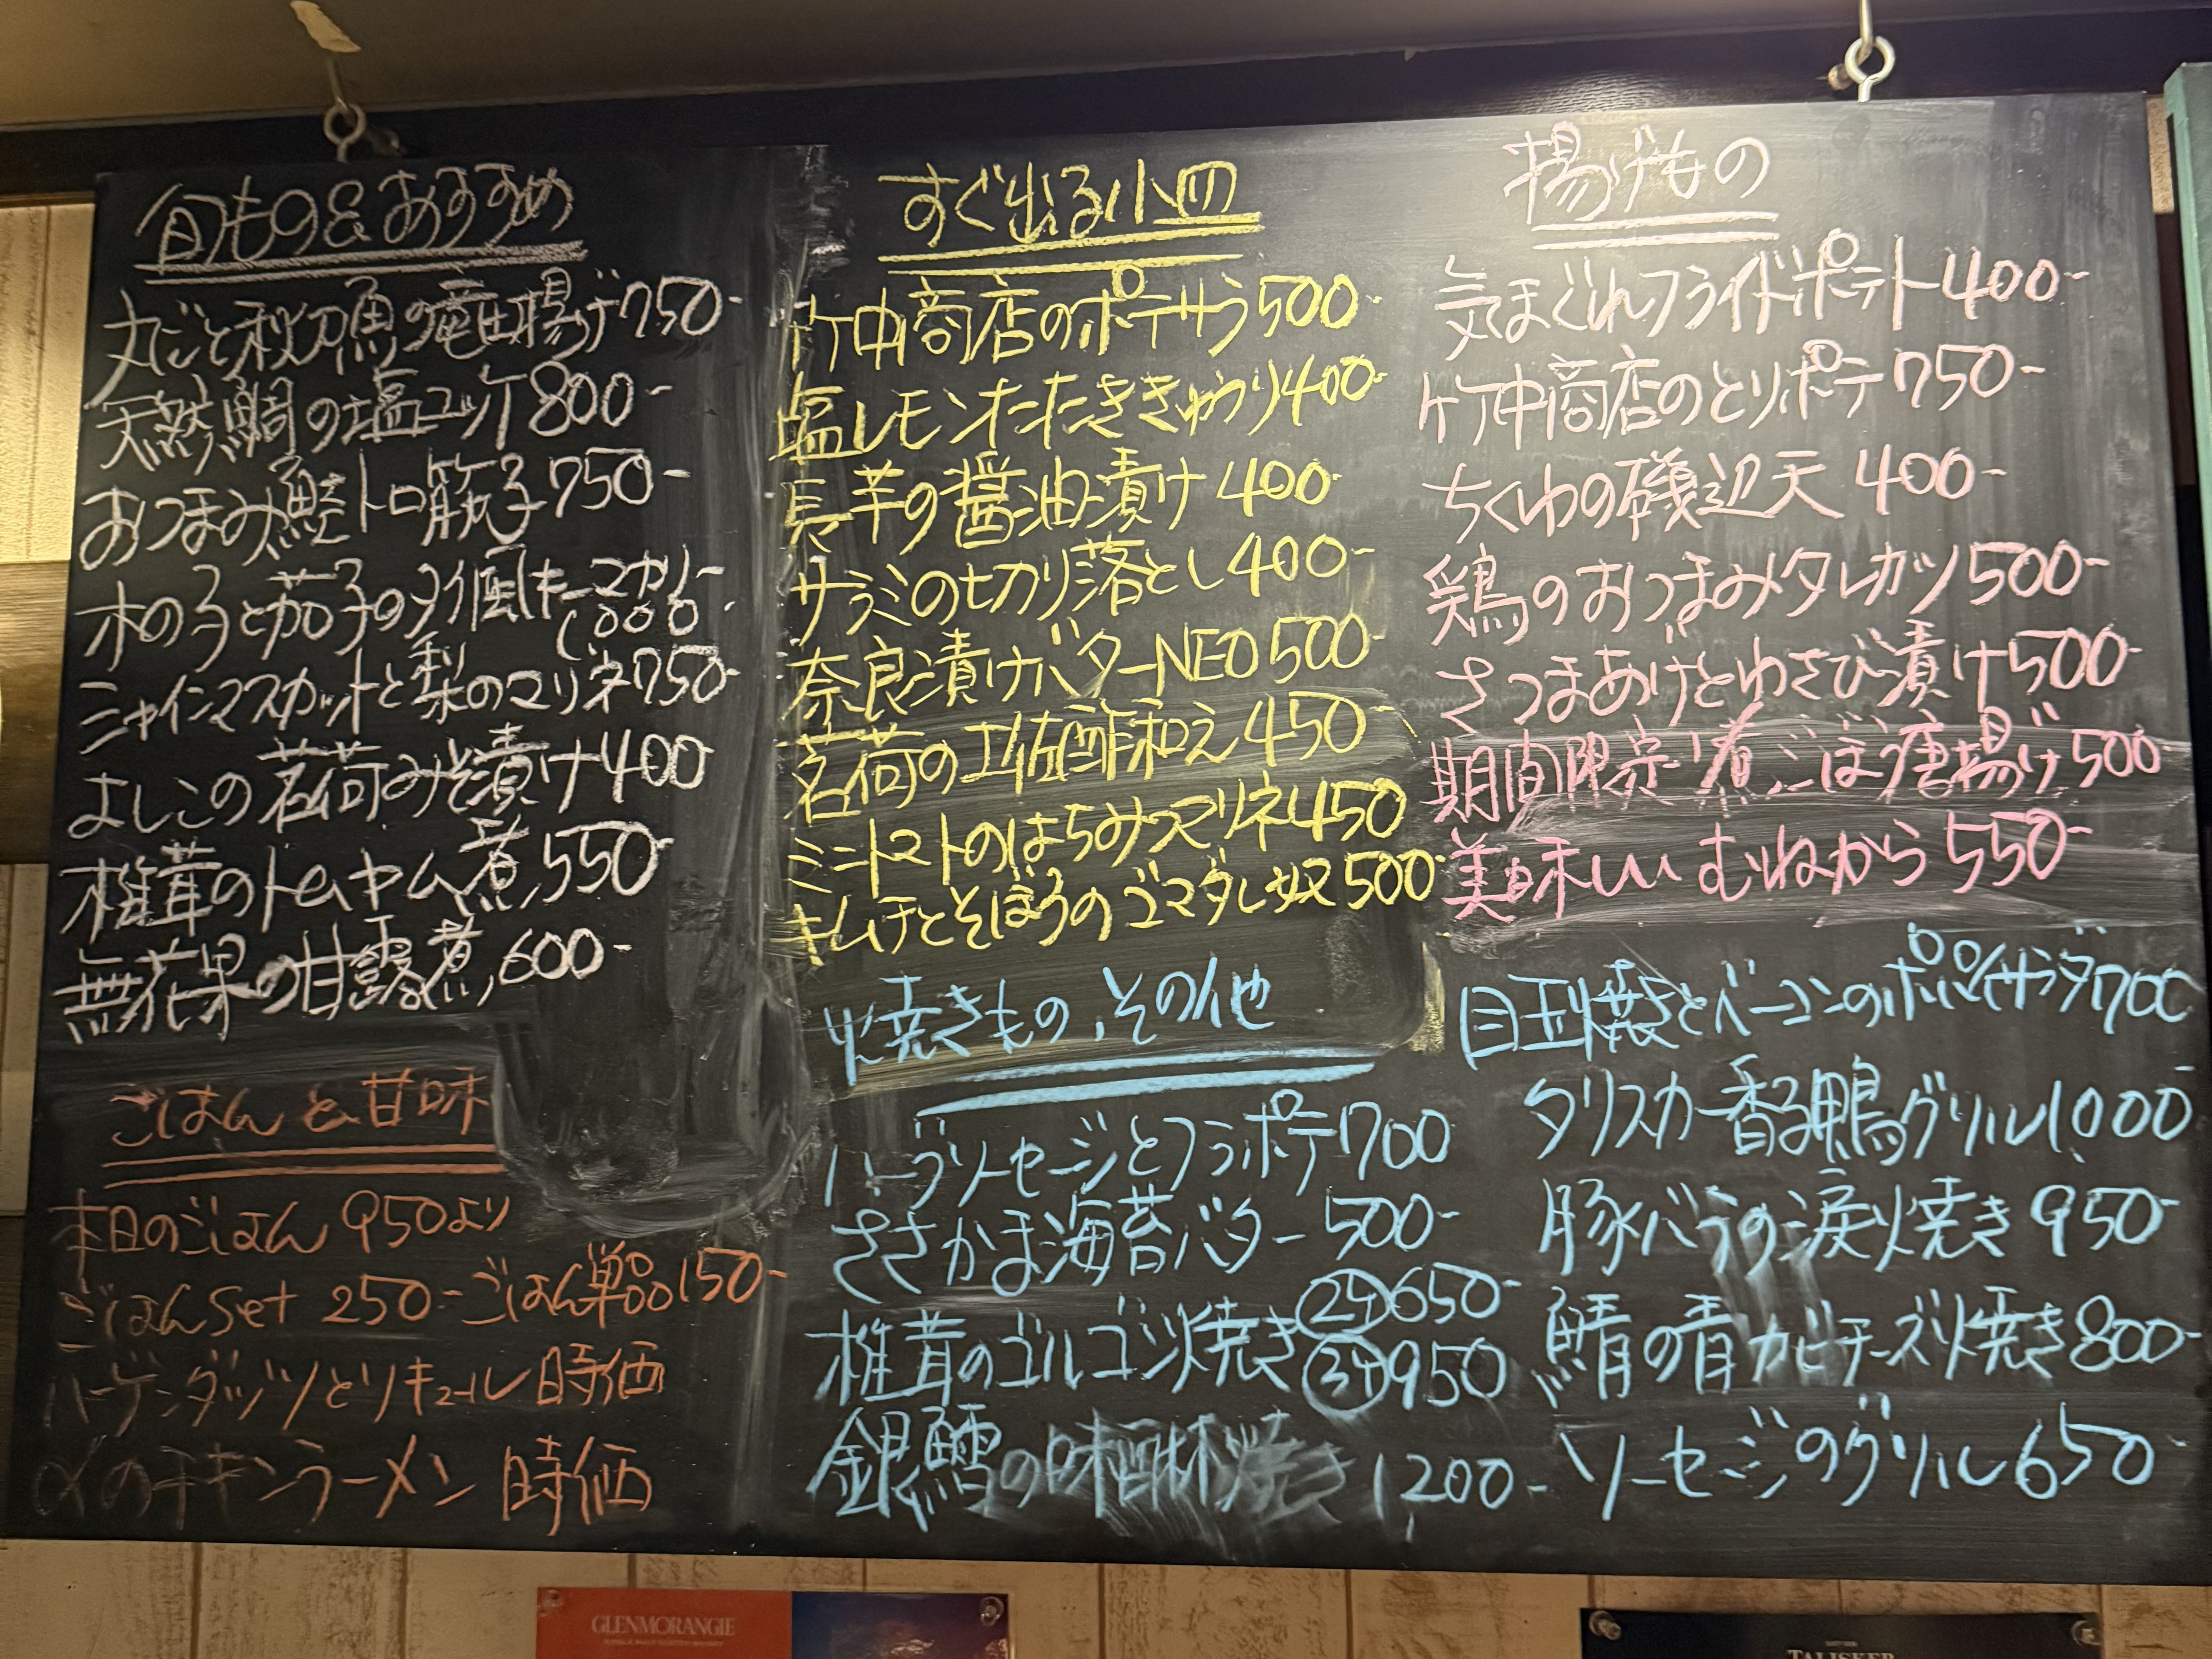 旬もの&おすすめ
丸ごと秋刀魚の竜田揚げ750-
天然鯛の塩ユッケ800-
おつまみ鮭トロ筋子750-
木の子と茄子のタイ風キーマカリー
1000-
シャインマスカットと梨のマリネ750-
よしこの茗荷みそ漬け400
椎茸のトムヤム煮550-
無花果の甘露煮600-
ごはんと甘味
本日のごはん 950より
ごはんSet 250- ごはん単品150-
ハーゲンダッツとリキュール 時価
〆のチキンラーメン 時価
すぐ出る小皿
竹中商店のポテサラ500-
塩レモンたたききゅうり400-
長芋の醤油漬け400-
サラミの切り落とし400-
奈良漬けバターNEO500-
茗荷の土佐酢和え450-
ミニトマトのはちみつマリネ450
キムチとそぼろのゴマダレ奴500-
焼きもの、その他
ハーブソーセージとフラポテ700
ささかま海苔バター500-
椎茸のゴルゴンゾ焼き ②ケ650-
③ケ950
銀鱈の味醂焼き 1,200-
揚げもの
気まぐれフライドポテト400-
竹中商店のとりポテ750-
ちくわの磯辺天 400-
鶏のおつまみタレカツ500-
さつまあげとわさび漬け500-
期間限定!煮ごぼ唐揚げ500-
美味しい むねから550-
目玉焼きとベーコンのポパイサラダ700
タリスカー香る鴨グリル1,000-
豚バラの涙焼き950-
鯖の青カビチーズ焼き800-
ソーセージのグリル650-
GLENMORANGIE
TALISKER